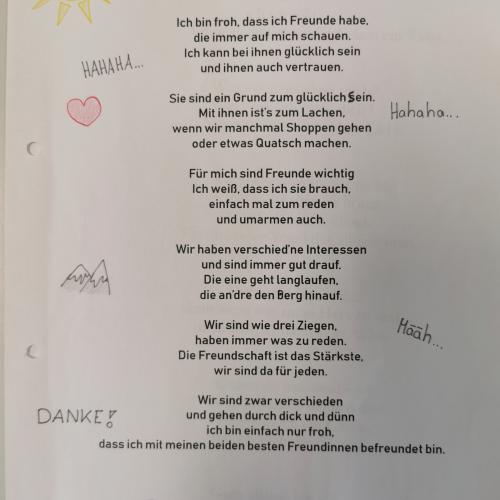 Ich bin froh, dass ich Freunde habe,
die immer auf mich schauen.
Ich kann bei ihnen glücklich sein
und ihnen auch vertrauen.
HAHAHA...
Sie sind ein Grund zum glücklich Sein.
Mit ihnen ist's zum Lachen,
wenn wir manchmal Shoppen gehen
oder etwas Quatsch machen.
Hahaha...
Für mich sind Freunde wichtig
Ich weiß, dass ich sie brauch,
einfach mal zum reden
und umarmen auch.
Wir haben verschied'ne Interessen
und sind immer gut drauf.
Die eine geht langlaufen,
die an'dre den Berg hinauf.
Wir sind wie drei Ziegen,
haben immer was zu reden.
Die Freundschaft ist das Stärkste,
wir sind da für jeden.
Määh...
Wir sind zwar verschieden
und gehen durch dick und dünn
ich bin einfach nur froh,
dass ich mit meinen beiden besten Freundinnen befreundet bin.
DANKE!